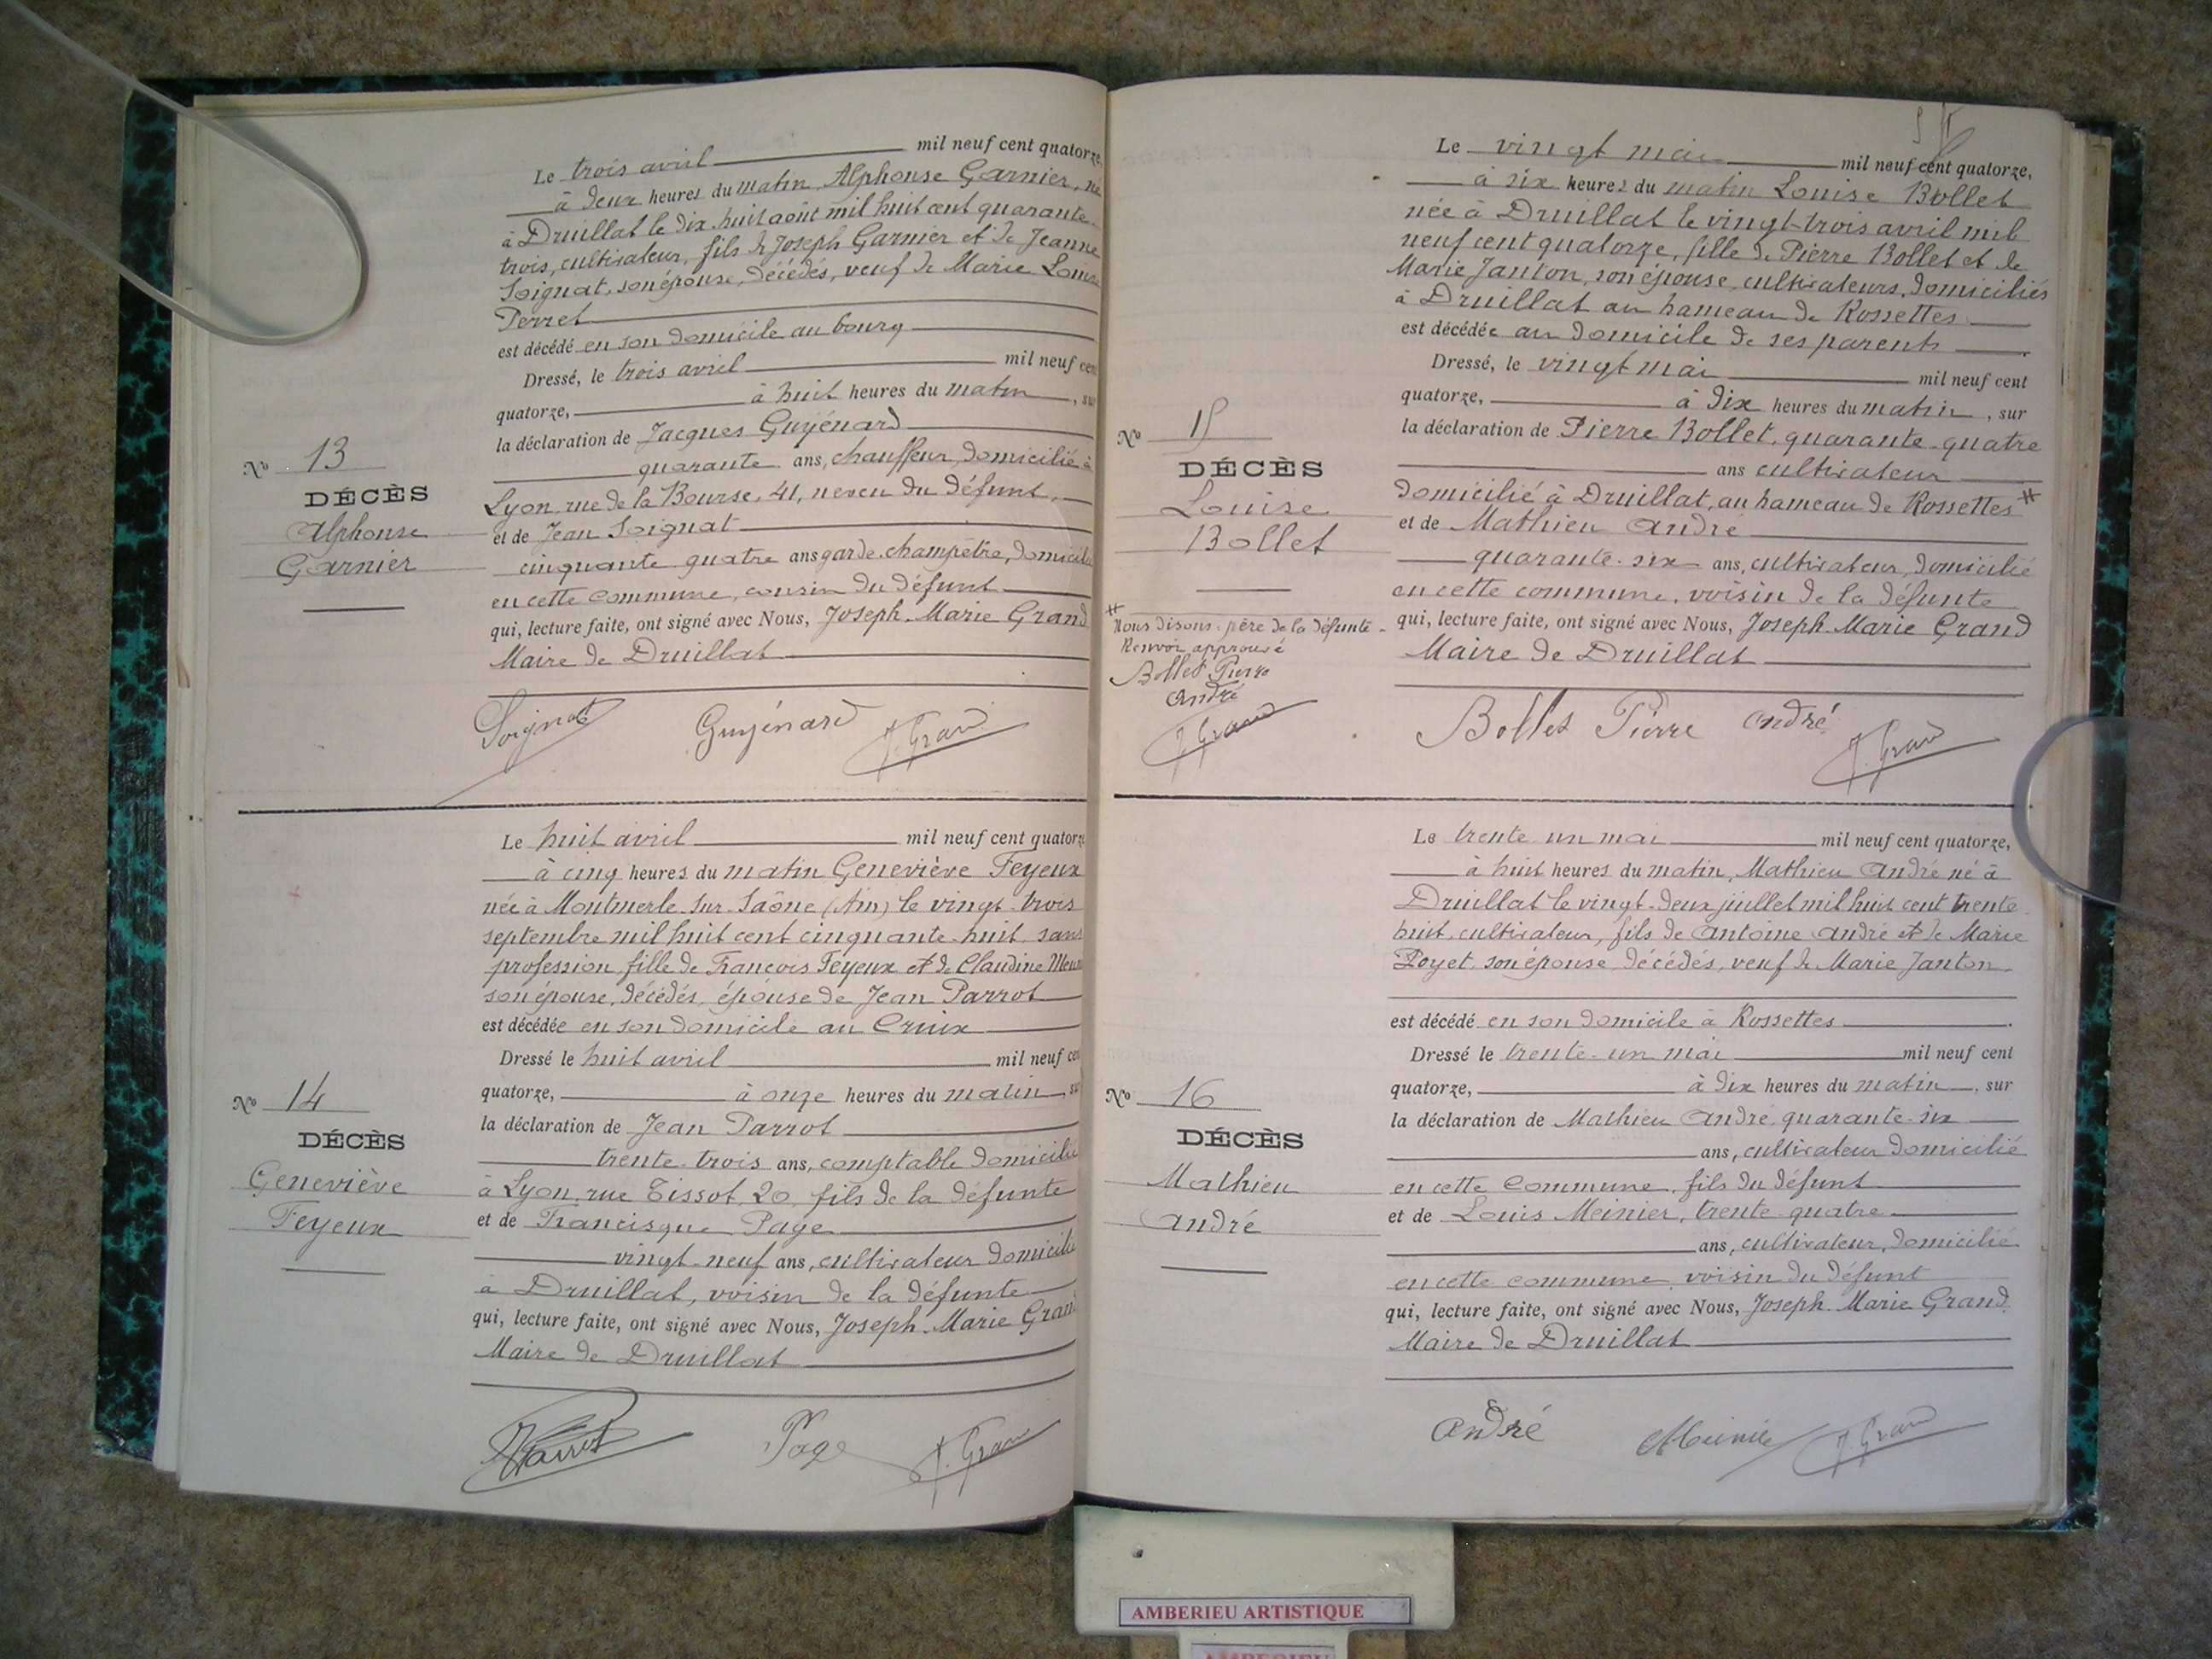 Le trois avril mil neuf cent quatorze
à deux heures du matin Alphonse Garnier, né
à Druillat le dix-huit août mil huit cent quarante-
trois, cultivateur, fils de Joseph Garnier et de Jeanne
Soignat, son épouse, décédés, veuf de Marie Louise
Perret
est décédé en son domicile au bourg
Dressé, le trois avril mil neuf cent
quatorze, à huit heures du matin, sur
la déclaration de Jacques Guyénard
quarante ans, chauffeur, domicilié à
Lyon, rue de la Bourse, 41, neveu du défunt,
et de Jean Soignat
cinquante quatre ans garde-champêtre, domicilié
en cette commune, cousin du défunt
qui, lecture faite, ont signé avec Nous, Joseph-Marie Grand
Maire de Druillat
No 13
DÉCÈS
Alphonse
Garnier
Soignat Guyénard J. Grand
Le huit avril mil neuf cent quatorze
à cinq heures du matin Geneviève Feyeux
née à Montmerle-sur-Saône (Ain) le vingt-trois
septembre mil huit cent cinquante-huit sans
profession fille de François Feyeux et de Claudine
son épouse, décédés, épouse de Jean Parrot
est décédée en son domicile au Cruix
Dressé le huit avril mil neuf cent
quatorze, à onze heures du matin, sur
la déclaration de Jean Parrot
trente-trois ans, comptable domicilié
à Lyon, rue Tissot, 20, fils de la défunte
et de Francisque Page
vingt-neuf ans, cultivateur domicilié
à Druillat, voisin de la défunte
qui, lecture faite, ont signé avec Nous, Joseph-Marie Grand
Maire de Druillat
No 14
DÉCÈS
Geneviève
Feyeux
Parrot Page J. Grand
Le vingt mai mil neuf cent quatorze,
à six heures du matin Louise Bollet
née à Druillat le vingt-trois avril mil
neuf cent quatorze, fille de Pierre Bollet et de
Marie Janton, son épouse, cultivateurs, domiciliés
à Druillat au hameau de Rossettes
est décédée au domicile de ses parents
Dressé, le vingt mai mil neuf cent
quatorze, à dix heures du matin, sur
la déclaration de Pierre Bollet, quarante-quatre
ans cultivateur
domicilié à Druillat, au hameau de Rossettes #
et de Mathieu André
quarante-six ans, cultivateur, domicilié
en cette commune, voisin de la défunte
qui, lecture faite, ont signé avec Nous, Joseph-Marie Grand
Maire de Druillat
No 15
DÉCÈS
Louise
Bollet
#
Nous disons: père de la défunte-
Renvoi approuvé
Bollet Pierre
André
J. Grand
Bollet Pierre André J. Grand
Le trente un mai mil neuf cent quatorze,
à huit heures du matin, Mathieu André né à
Druillat le vingt-deux juillet mil huit cent trente-
huit, cultivateur, fils de Antoine André et de Marie
Poyet, son épouse, décédés, veuf de Marie Janton
est décédé en son domicile à Rossettes
Dressé le trente-un mai mil neuf cent
quatorze, à dix heures du matin, sur
la déclaration de Mathieu André, quarante-six
ans, cultivateur domicilié
en cette commune, fils du défunt
et de Louis Meinier, trente-quatre
ans, cultivateur, domicilié
en cette commune voisin du défunt
qui, lecture faite, ont signé avec Nous, Joseph-Marie Grand
Maire de Druillat
No 16
DÉCÈS
Mathieu
André
André Meinier J. Grand
AMBERIEU ARTISTIQUE
AMBERIEU